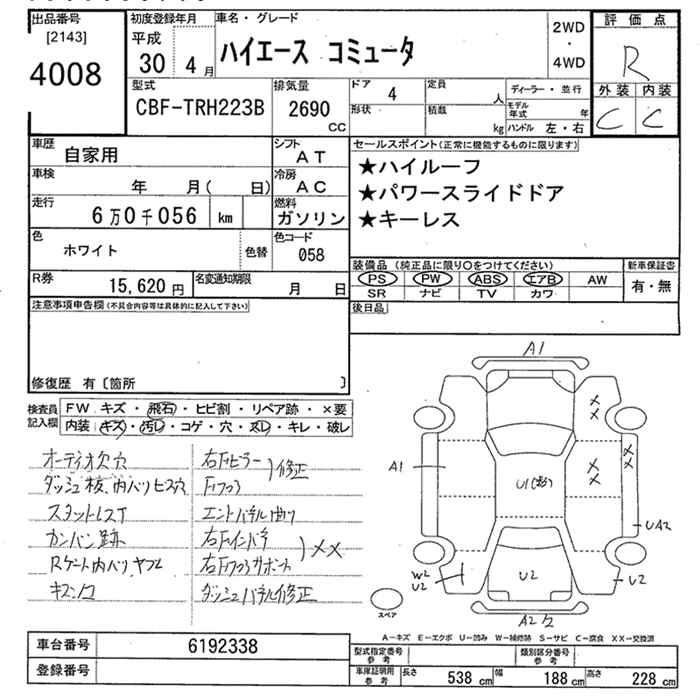 出品番号
[2143]
4008
初度登録年月
平成
30 4月
車名・グレード
ハイエース コミュータ
2WD
・
4WD
評価点
R
外装 内装
C C
型式
CBF-TRH223B
排気量
2690
CC
ドア 4
定員 人
形状
積載 kg
ディーラー・並行
モデル年式 年
ハンドル 左・右
車歴 自家用
シフト AT
車検 年 月( 日)
冷房 AC
走行 6万0千056 km
燃料 ガソリン
色 ホワイト
色替
色コード 058
R券 15,620円
名変通知期限 月 日
セールスポイント(正常に機能するものに限ります)
★ハイルーフ
★パワースライドドア
★キーレス
装備品(純正品に限り○をつけてください)
PS PW ABS エアB AW
SR ナビ TV カワ
新車保証書
有・無
後日品
注意事項申告欄(不具合内容等は具体的に記入して下さい)
修復歴 有〔箇所 〕
検査員記入欄
FW キズ・飛石・ヒビ割・リペア跡・×要
内装 キズ・汚レ・コゲ・穴・スレ・キレ・破レ
オーディオ欠穴
ダッシュ 内ハリビス穴
スタットレスT
カンバン跡
Rゲート内ハリヤブレ
右Fピラー
修正
エントパネル曲り
右Fインパネ
右Fフロアサポート
××
ダッシュパネル修正
A1
A1
××
××
××
U1
UA2
W2
U2
U2
U2
A2
スペア
A-キズ E-エクボ U-凹み W-補修跡 S-サビ C-腐食 XX-交換済
車台番号 6192338
登録番号
型式指定番号 参考
類別区分番号 参考
車庫証明用 参考
長さ 538 cm
幅 188 cm
高さ 228 cm